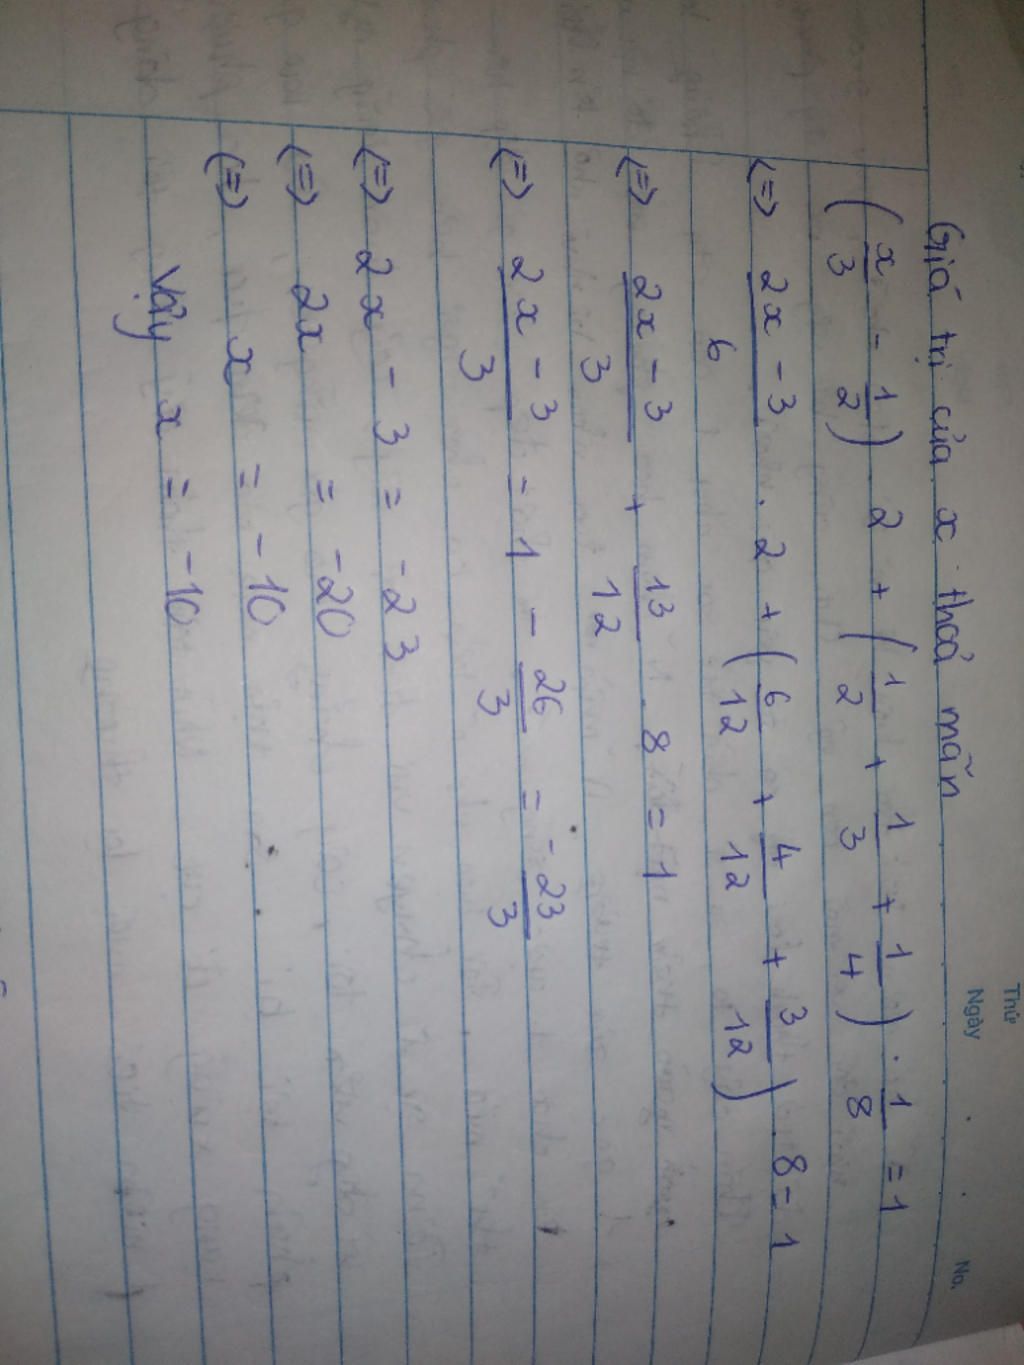 Thứ
Ngày No.
Giá trị của x thoả mãn
(x/3 - 1/2) 2 + (1/2 + 1/3 + 1/4) . 1/8 = 1
(=) (2x - 3)/6 . 2 + (6/12 + 4/12 + 3/12) . 8 = 1
(=) (2x - 3)/3 + 13/12 . 8 = 1
(=) (2x - 3)/3 = 1 - 26/3 = -23/3
(=) 2x - 3 = -23
(=) 2x = -20
(=) x = -10
Vậy x = -10